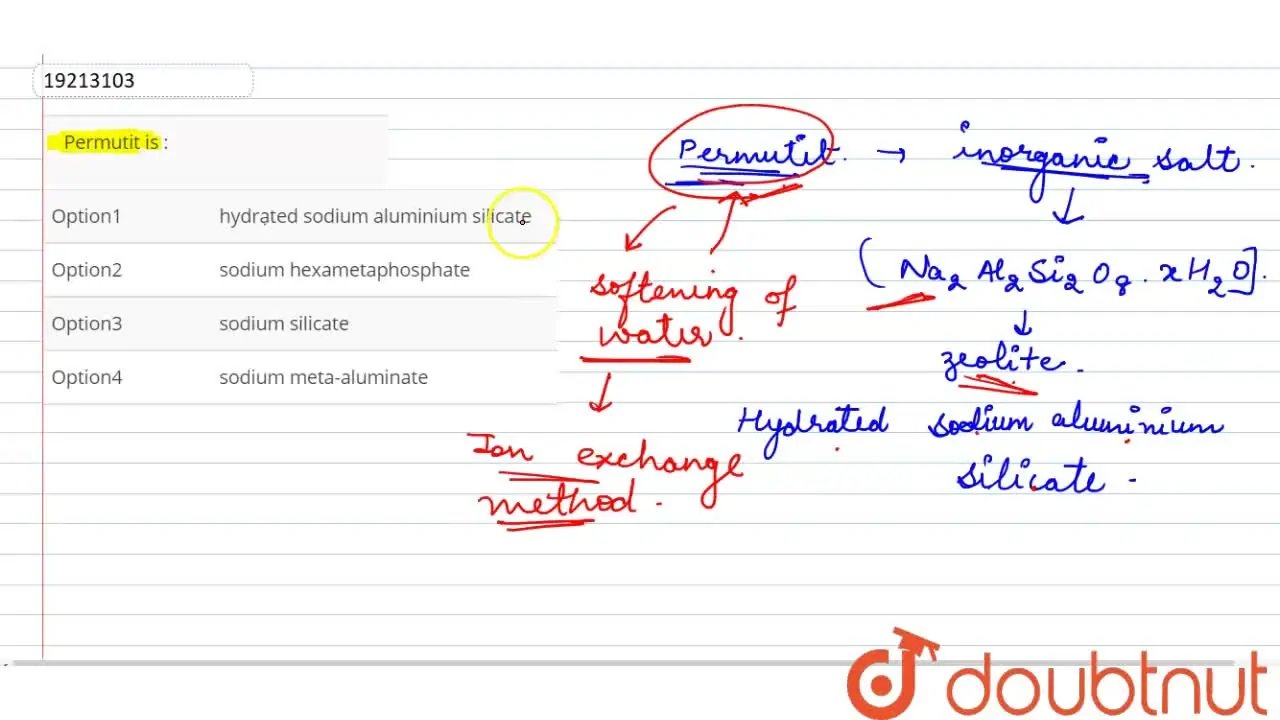 19213103
Permutit is :
Option1 hydrated sodium aluminium silicate
Option2 sodium hexametaphosphate
Option3 sodium silicate
Option4 sodium meta-aluminate
Permutit. → inorganic salt.
↓
(Na₂ Al₂ Si₂ O₈ . xH₂O].
↓
zeolite.
Hydrated sodium aluminium
silicate -
softening of
water.
↓
Ion exchange
method.
doubtnut